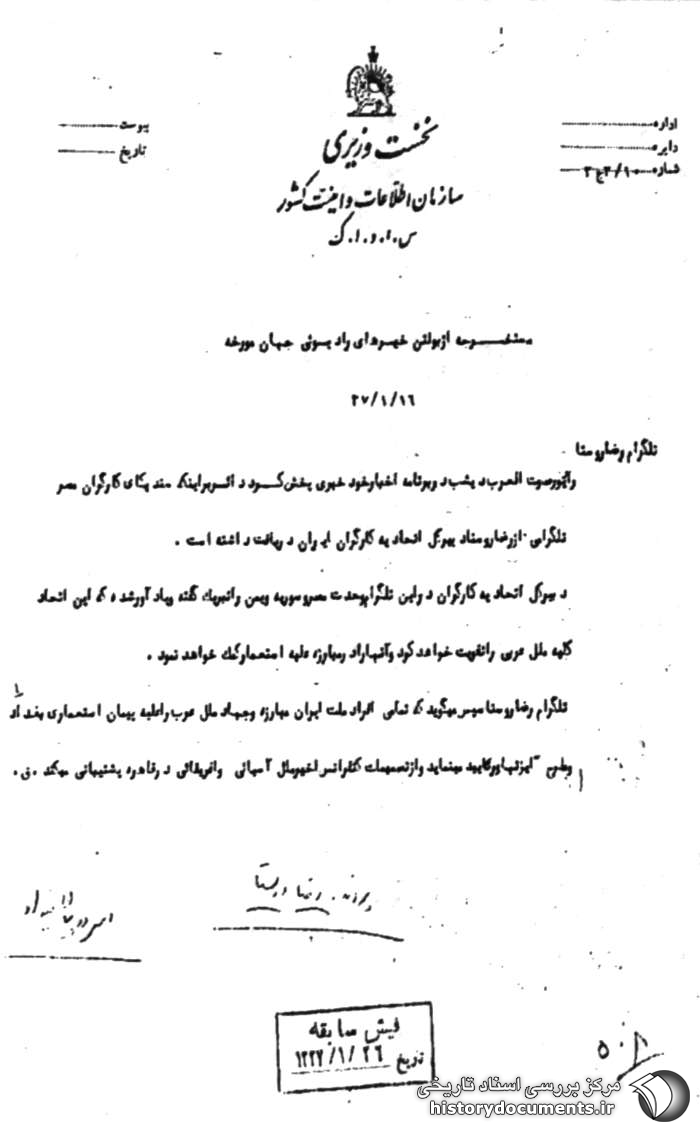 نخست وزیری
سازمان اطلاعات و امنیت کشور
س.ا.و.ا.ک
اداره
دایره
شماره
پیوست
تاریخ
مستخـرجه از بولتن خبرهای رادیوئی جهان مورخه
۳۷/۱/۱۶
تلگرام رضا روستا
رادیو صوت العرب دیشب در برنامه اخبار خود خبری پخش کرد دائر بر اینکه سندیکای کارگران مصر
تلگرامی از رضا روستا دبیر کل اتحادیه کارگران ایران دریافت داشته است .
دبیر کل اتحادیه کارگران در این تلگرام وحدت مصر و سوریه و یمن را تبریک گفته و یادآور شده که این اتحاد
کلیه ملل عربی را تقویت خواهد کرد و آنها را در مبارزه علیه استعمار کمک خواهد نمود .
تلگرام رضا روستا سپس میگوید که تمامی افراد ملت ایران مبارزه و جهاد ملل عرب را علیه پیمان استعماری بغداد
و طرح آیزنهاور تایید مینماید و از تصمیمات کنفرانس اخیر ملل آسیائی و افریقائی در قاهره پشتیبانی میکند . ق .
پرونده رضا روستا
فیش سابقه
تاریخ ۱۳۳۷/۱/۲۶
مرکز بررسی اسناد تاریخی
historydocuments.ir